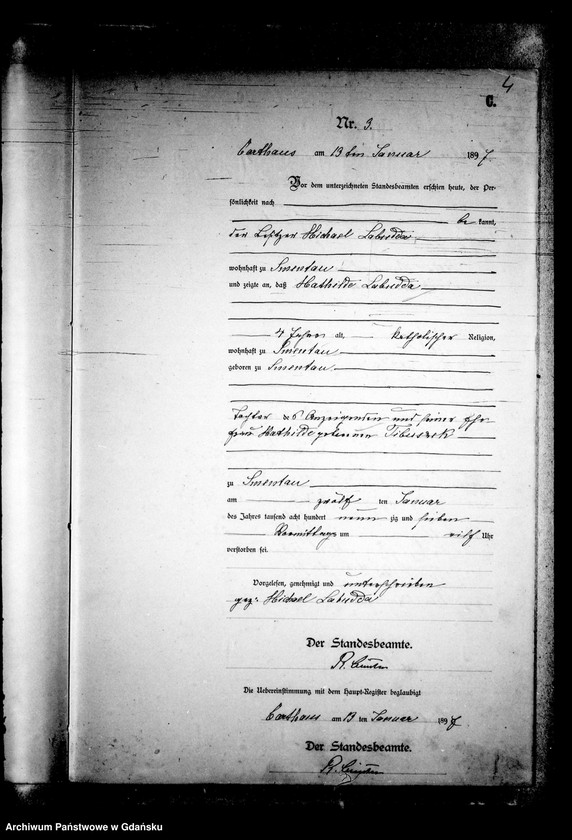 4
C.
Nr. 3.
Carthaus am 13 ten Januar 1897
Vor dem unterzeichneten Standesbeamten erschien heute, der Per-
sönlichkeit nach
be kannt,
der Besitzer Michael Labudda
wohnhaft zu Smentau
und zeigte an, daß Mathilde Labudda
4 Jahre alt, katholischer Religion,
wohnhaft zu Smentau
geboren zu Smentau
Tochter des Anzeigenden und seiner Ehe
frau Mathilde geborenen
zu Smentau
am zwölf ten Januar
des Jahres tausend acht hundert neun zig und sieben
Vormittags um elf Uhr
verstorben sei.
Vorgelesen, genehmigt und unterschrieben
gez: Michael Labudda
Der Standesbeamte.
Die Uebereinstimmung mit dem Haupt-Register beglaubigt
Carthaus am 13 ten Januar 1897
Der Standesbeamte.
Archiwum Państwowe w Gdańsku